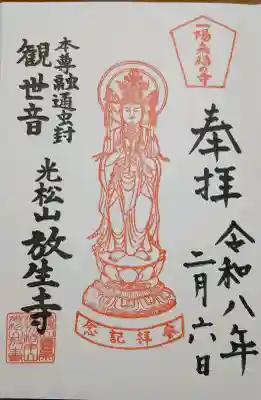 一陽来福の寺
奉拝
令和八年
二月六日
参拝記念
本尊融通虫封
観世音
光松山
放生寺